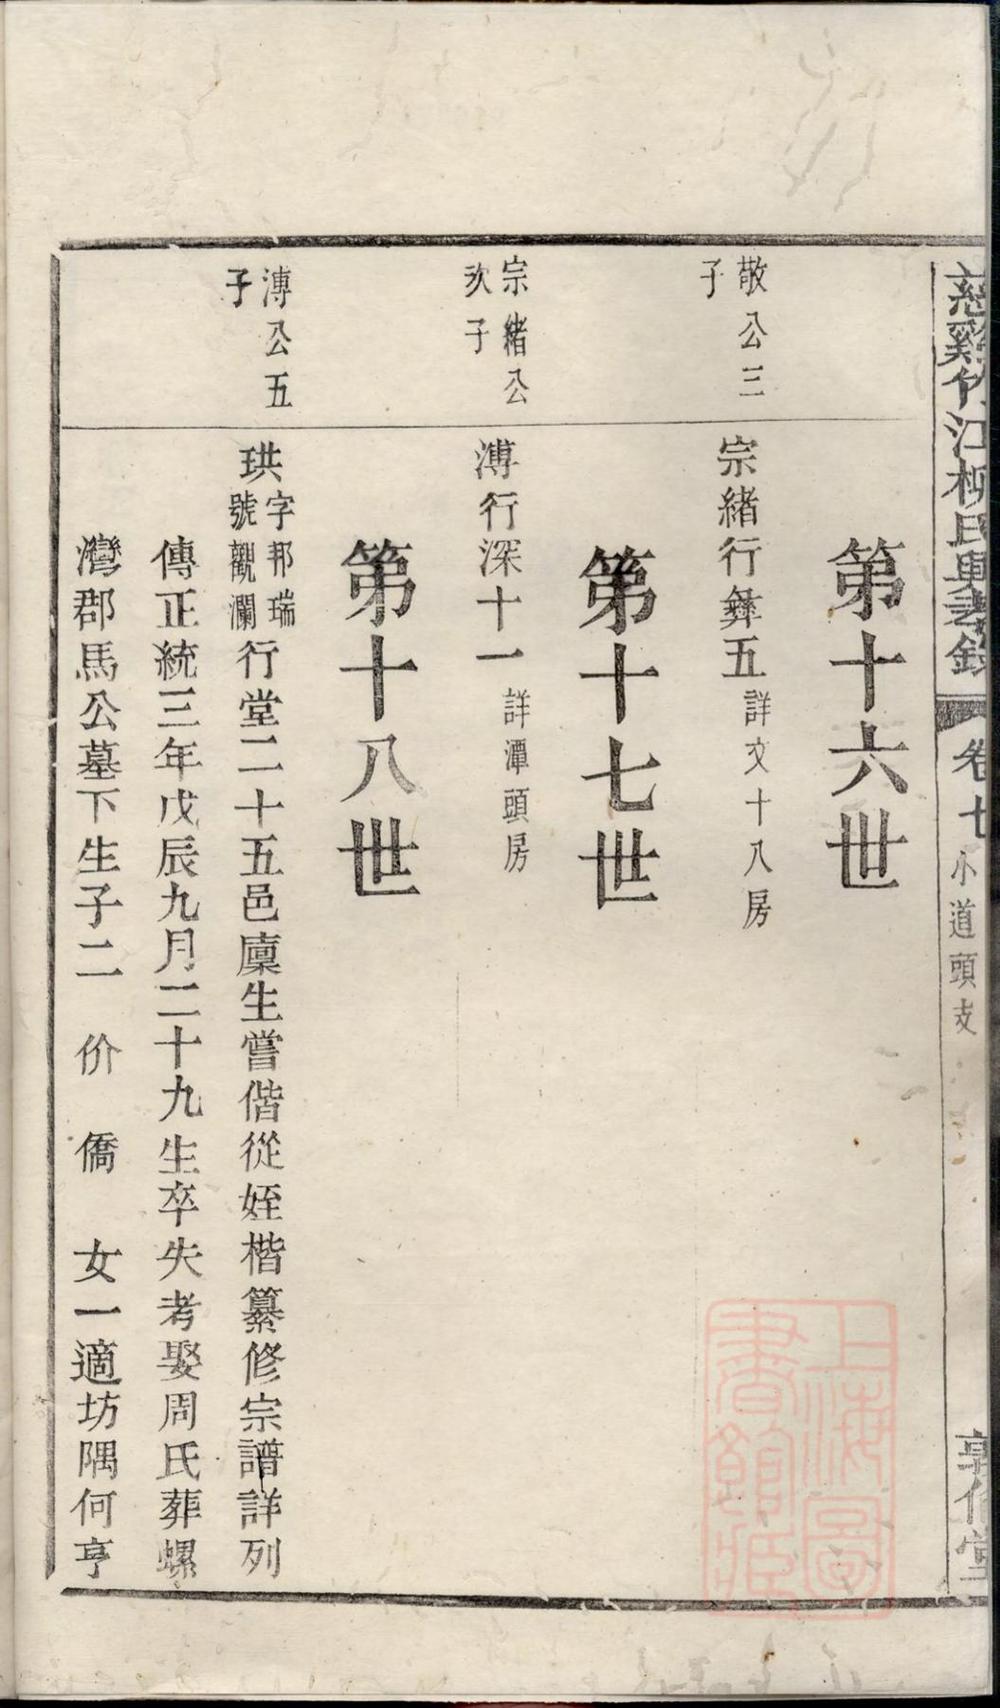 慈谿竹江柳氏
卷七
小道頭支
第十六世
敬公三
子
宗緒行彝五
詳文十八房
第十七世
宗緒公
次子
溥行深十一
詳潭頭房
第十八世
溥公五
子
珙
字邦瑞
號觀瀾
行堂二十五邑廩生嘗偕從姪楷纂修宗譜詳列
傳正統三年戊辰九月二十九生卒失考娶周氏葬螺
灣郡馬公墓下生子二 价 僑 女一適坊隅何亨
上海圖
書館藏